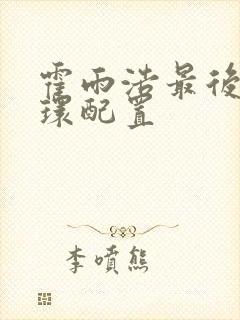 霍雨浩最後
環配置
李噴熊